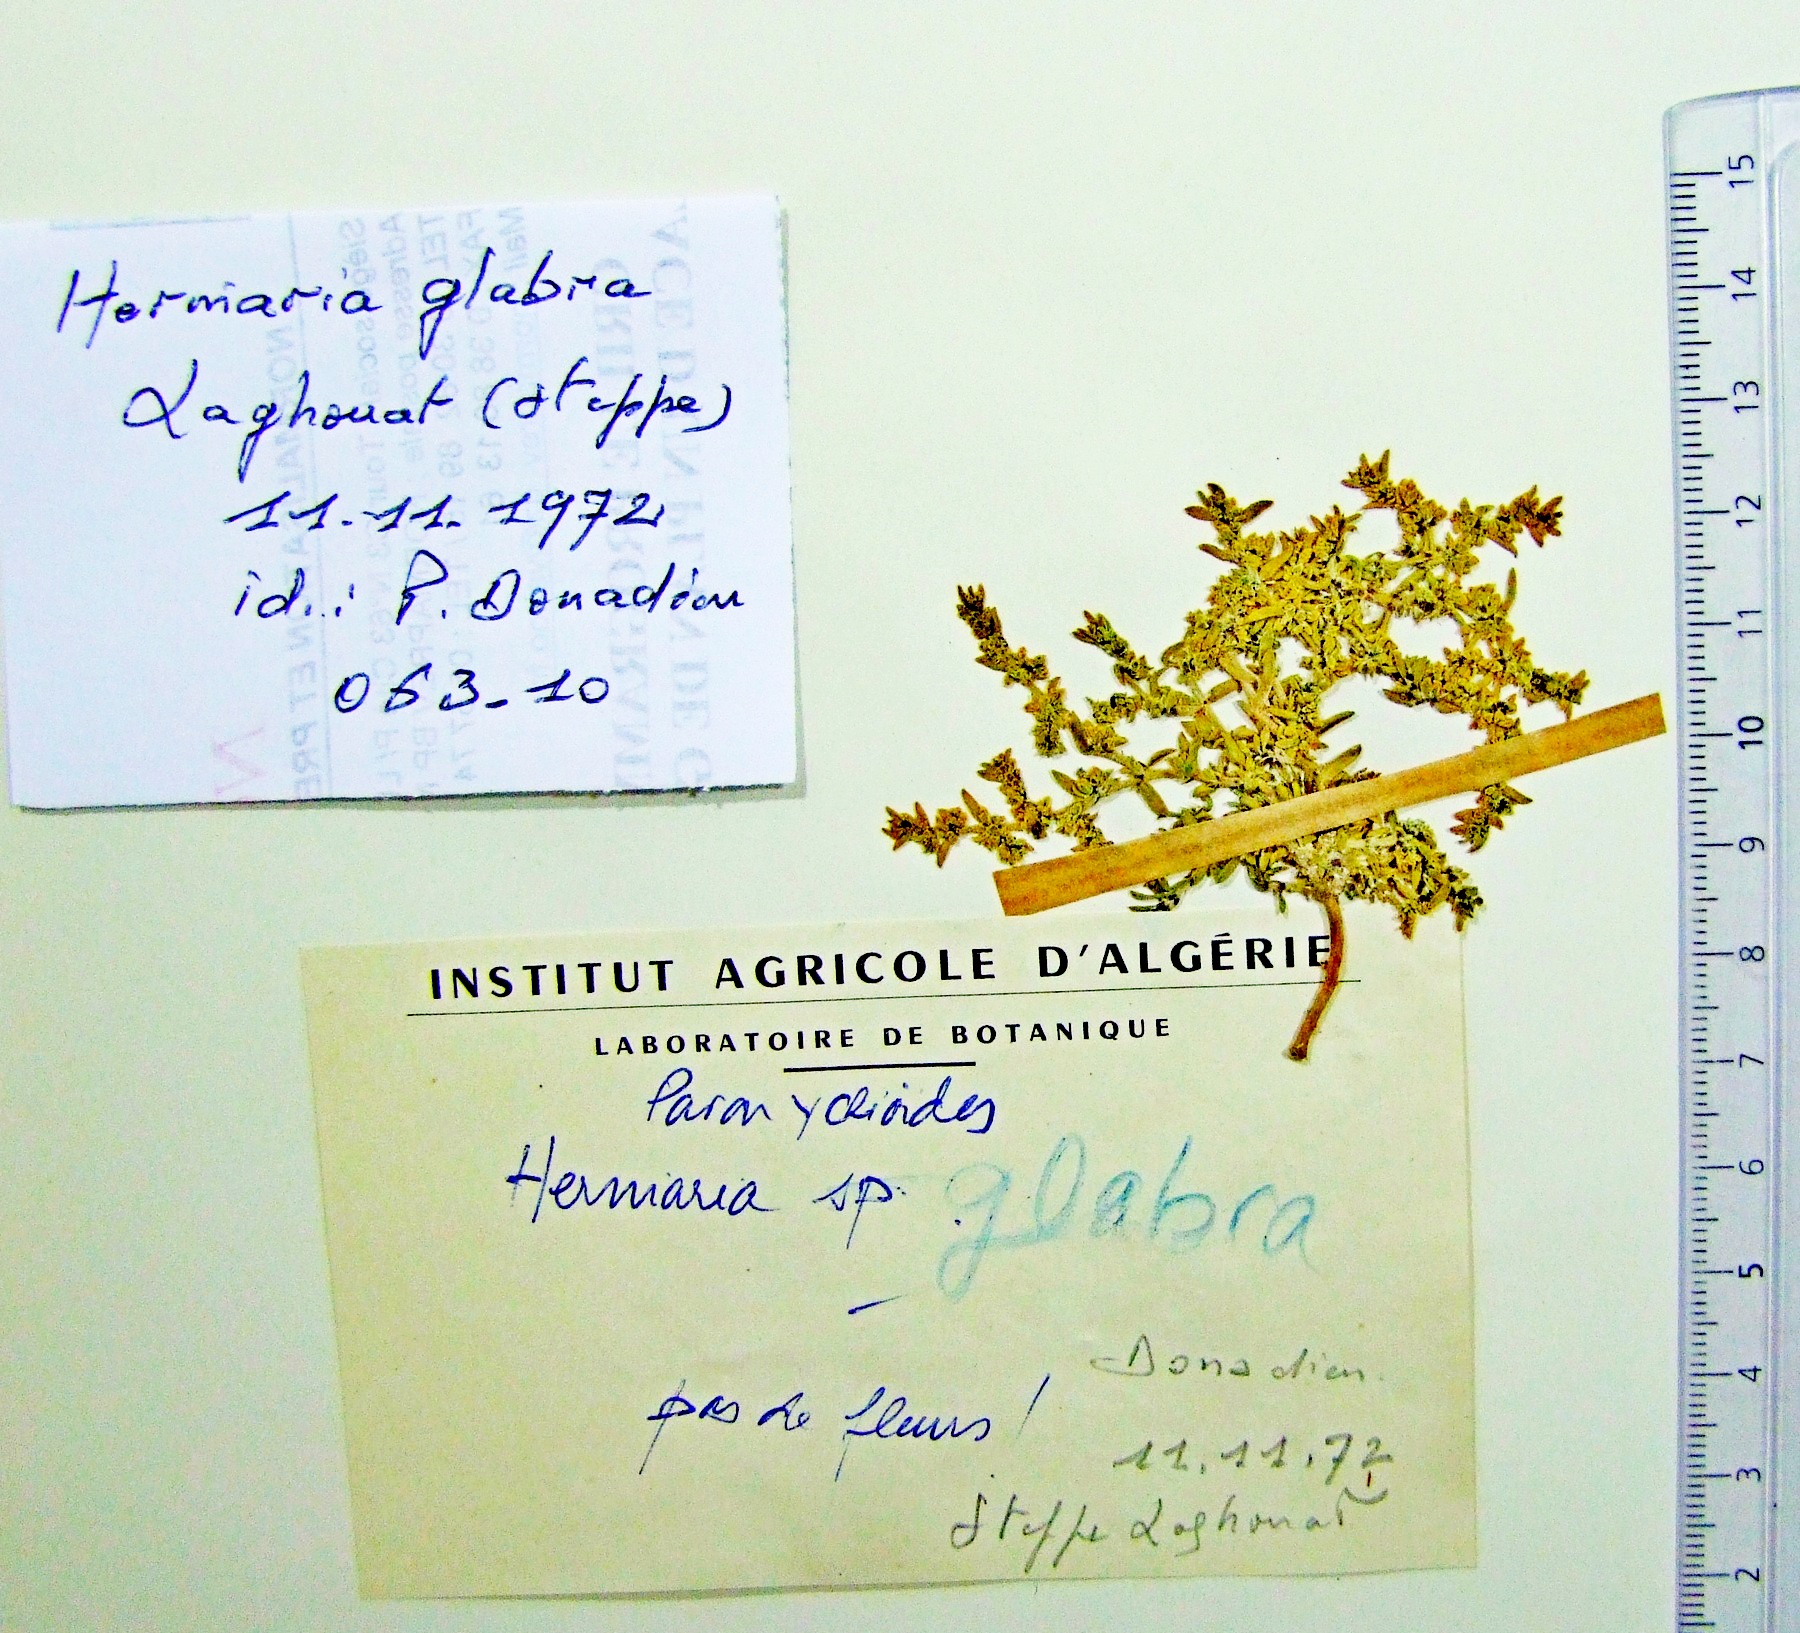 Herniaria glabra
Laghouat (steppe)
11.11.1972
id.: P. Donadieu
063-10
INSTITUT AGRICOLE D'ALGÉRIE
LABORATOIRE DE BOTANIQUE
Paronychioides
Herniaria sp. glabra
pas de fleurs!
Donadieu.
11.11.72
Steppe Laghouat
15
14
13
12
11
10
9
8
7
6
5
4
3
2